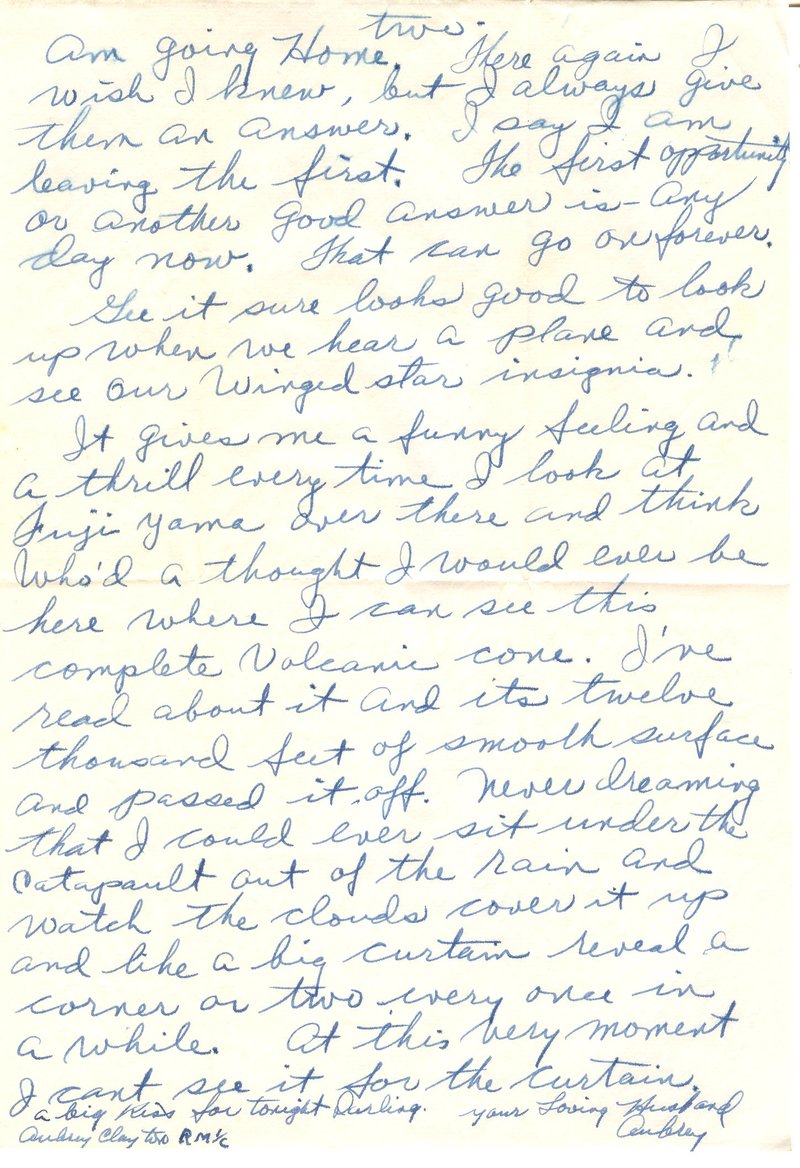 two.
am going Home. There again I
wish I knew, but I always give
them an answer. I say I am
leaving the first. The first opportunity
or another good answer is - any
day now. That can go on forever.
Gee it sure looks good to look
up when we hear a plane and
see our Winged star insignia.
It gives me a funny feeling and
a thrill every time I look at
Fuji Yama over there and think
Who'd a thought I would ever be
here where I can see this
complete Volcanic cone. I've
read about it and its twelve
thousand feet of smooth surface
and passed it off. Never dreaming
that I could ever sit under the
Catapault out of the rain and
watch the clouds cover it up
and like a big curtain reveal a
corner or two every once in
a while. At this very moment
I cant see it for the curtain.
a big Kiss for tonight Darling. your Loving Husband
Aubrey Clayton RM1/c Aubrey